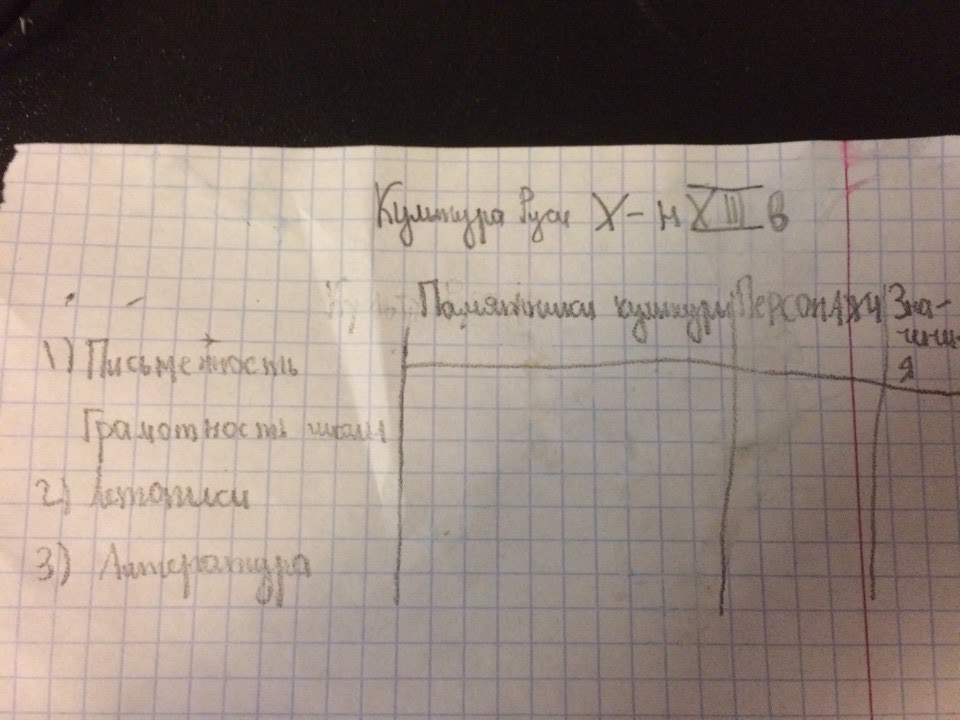 Культура Руси X – н XIII в
Памятники культуры Персонажи Зна-
чени-
я
1) Письменность
Грамотность школы
2) Летописи
3) Литература